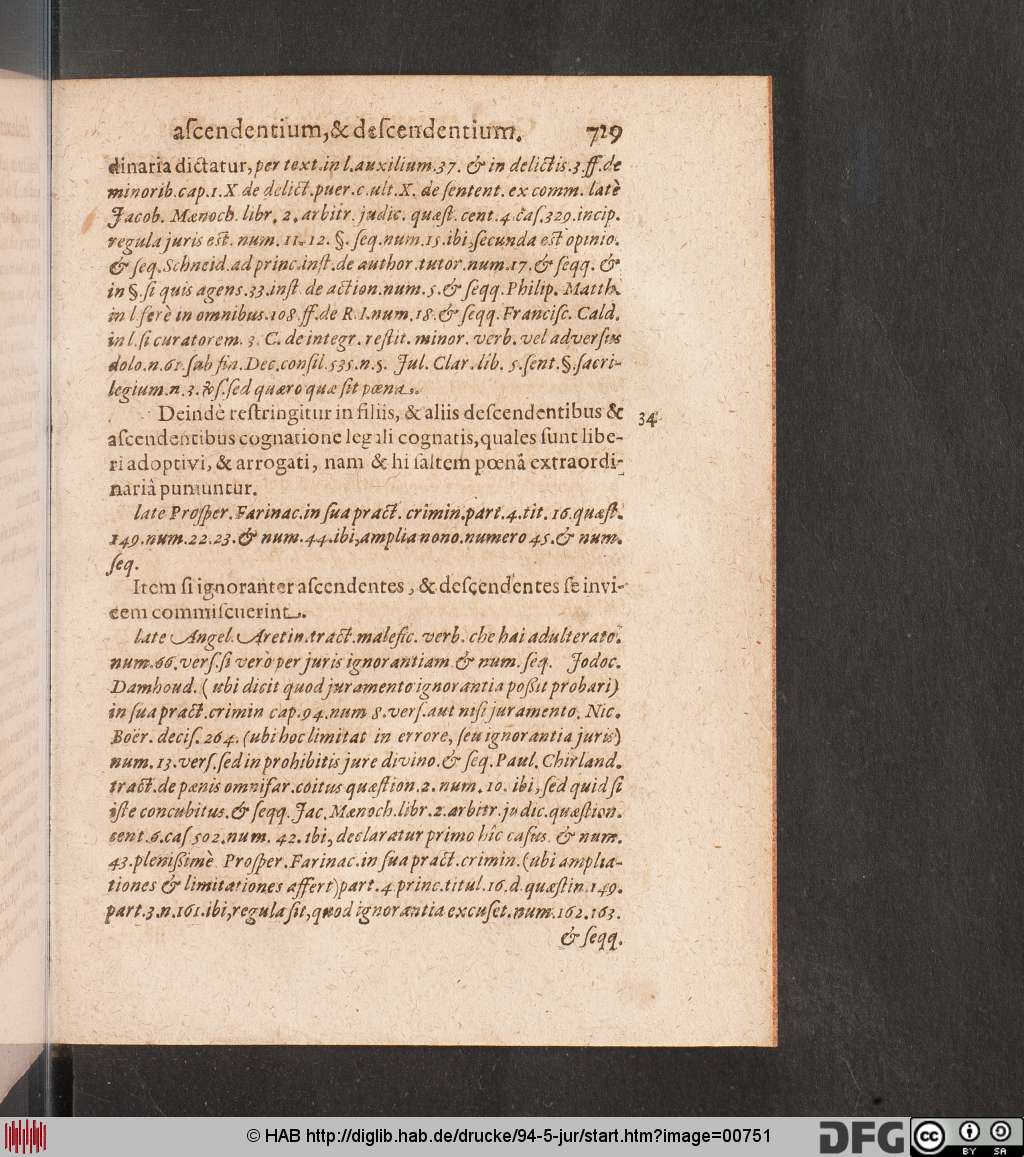 ascendentium, & descendentium. 729
dinaria dictatur, per text. in l. auxilium. 37. & in delictis. 3. ff. de
minorib. cap. 1. X. de delict. puer. c. ult. X. de sentent. ex comm. latè
Jacob. Mænoch. libr. 2. arbitr. judic. quæst. cent. 4. cas. 329. incip.
regula juris est. num. 11. 12. §. seq. num. 15. ibi, secunda est opinio.
& seq. Schneid. ad princ. inst. de author. tutor. num. 17. & seqq. &
in §. si quis agens. 33. inst. de action. num. 5. & seqq. Philip. Matth.
in l. ferè in omnibus. 108. ff. de R. I. num. 18. & seqq. Francisc. Cald.
in l. si curatorem. 3. C. de integr. restit. minor. verb. vel adversus
dolo. n. 61. sub fin. Dec. consil. 535. n. 5. Jul. Clar. lib. 5. sent. §. sacri-
legium. n. 3. & §. sed quæro quæ sit pœna.
Deindè restringitur in filiis, & aliis descendentibus & 34
ascendentibus cognatione legali cognatis, quales sunt libe-
ri adoptivi, & arrogati, nam & hi saltem pœnâ extraordi-
nariâ puniuntur.
late Prosper. Farinac. in sua pract. crimin. part. 4. tit. 16. quæst.
149. num. 22. 23. & num. 44. ibi, amplia nono. numero 45. & num.
seq.
Item si ignoranter ascendentes, & descendentes se invi-
cem commiscuerint.
late Angel. Aretin. tract. malefic. verb. che hai adulterato.
num. 66. vers. si verò per juris ignorantiam & num. seq. Jodoc.
Damhoud. (ubi dicit quod juramento ignorantia poßit probari)
in sua pract. crimin cap. 94. num 8. vers. aut nisi juramento. Nic.
Boër. decis. 264. (ubi hoc limitat in errore, seu ignorantia juris)
num. 13. vers. sed in prohibitis jure divino. & seq. Paul. Chirland.
tract. de pœnis omnifar. coitus quæstion. 2. num. 10. ibi, sed quid si
iste concubitus. & seqq. Jac. Mænoch. libr. 2. arbitr. judic. quæstion.
cent. 6. cas 502. num. 42. ibi, declaratur primo hîc casus. & num.
43. plenißimè Prosper. Farinac. in sua pract. crimin. (ubi amplia-
tiones & limitationes affert) part. 4 princ. titul. 16. d. quæstin. 149.
part. 3. n. 161. ibi, regula sit, quod ignorantia excuset. num. 162. 163.
& seqq.
© HAB http://diglib.hab.de/drucke/94-5-jur/start.htm?image=00751
DFG cc BY SA